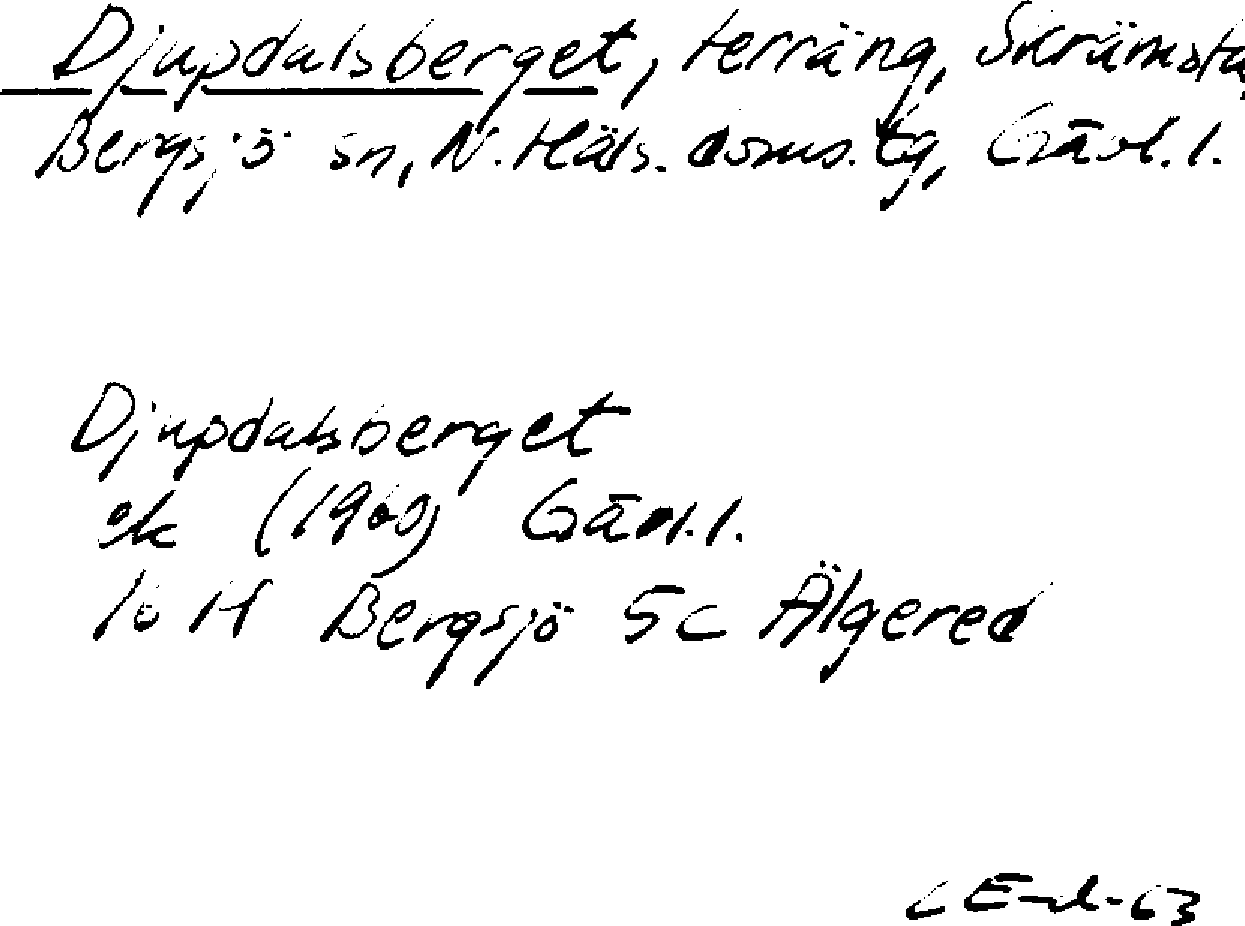 Djupdalsberget, terräng, Skrämsta,
Bergsjö sn, N. Häls. doms. tg, Gävl. l.
Djupdalsberget
ek (1960) Gävl. l.
16 H Bergsjö 5c Älgered
63